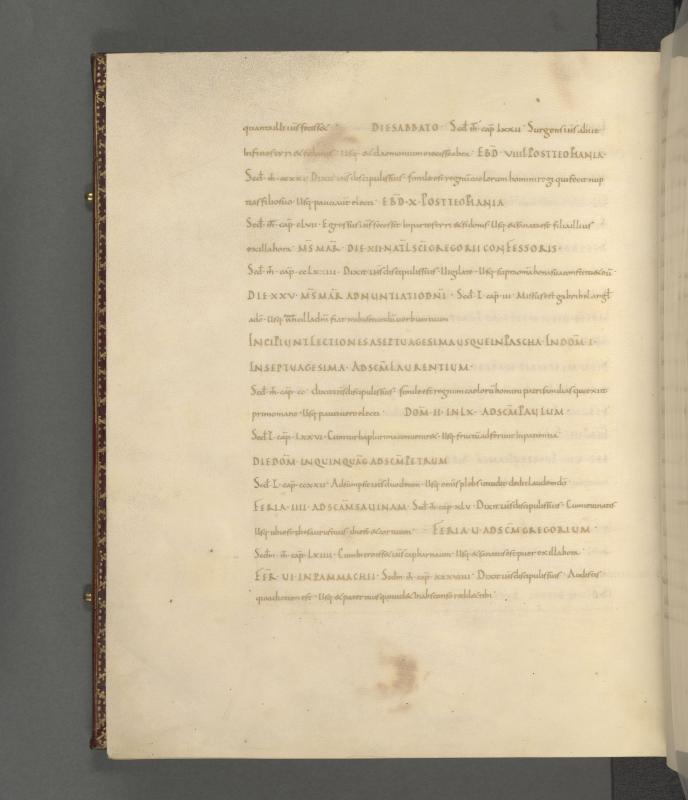 DIE SABBATO · Secd m̄ cap̄ LXXII · Surgens ihs abiit
in fines tyri & sidonis · Usq: & daemonium exisse a te · EBD̄ · VIIII · POST TEOPHANIA ·
Secd · m̄ · Dixit ihs discipulis suis · simile est regnum caelorum homini regi qui fecit nup
tias filio suo · Usq: pauci u electi · EBD̄ · X · POST TEOPHANIA
Secd · m̄ · cap̄ · clvii · Egressus ihs secessit in partes tyri & sidonis · Usq: & sanata est filia illius
ex illa hora · MS̄ MAR̄ · DIE · XII · NAT̄L SC̄I GREGORII CONFESSORIS ·
Secd · m̄ · cap̄ · Dixit ihs discipulis suis · Uigilate · Usq: super omnia bona sua
DIE XXV · MS̄ MAR̄ ADNUNTIATIO DN̄I · Secd · L · cap̄ · III · Missus est gabrihel angl̄
ado · Usq: ancilla dn̄i fiat mihi secundū uerbum tuum
INCIPIUNT LECTIONES A SEPTUAGESIMA USQUE IN PASCHA · IN DOM̄ · I ·
IN SEPTUAGESIMA · AD SC̄M LAURENTIUM ·
Secd · m̄ · cap̄ · cc · dixit ihs discipulis suis · simile est regnum caelorū homini patri familias qui exiit
primo mane · Usq: pauci uero electi · DOM̄ · II · IN LX · AD SC̄M PAULUM ·
Secd · L · cap̄ · LXXVI · Cum turba plurima conueniret · Usq: fructū adferunt in patientia
DIE DOM̄ · IN QUINQUAG̅ AD SC̄M PETRUM
Secd · L · cap̄ · ccxxii · Adsumpsit ihs duodecim · Usq: omis plebs ut uidit dedit laudem dō
FERIA · IIII · AD SC̄AM SAUINAM · Secd · m̄ · cap̄ · XLV · Dixit ihs discipulis suis · Cum ieiunatis
Usq: ubi est thesaurus tuus ibi est & cor tuum · FERIA · U · AD SC̄M GREGORIUM ·
Secdm · m̄ · cap̄ · LXIIII · Cum introisset ihs capharnaum · Usq: & sanatus est puer ex illa hora ·
FER̄ · UI · IN PAMMACHII · Secdm · m̄ · cap̄ · XXXVIIII · Dixit ihs discipulis suis · Audistis
quia dictum est · Usq: & pater tuus qui uidet in absconso reddet tibi